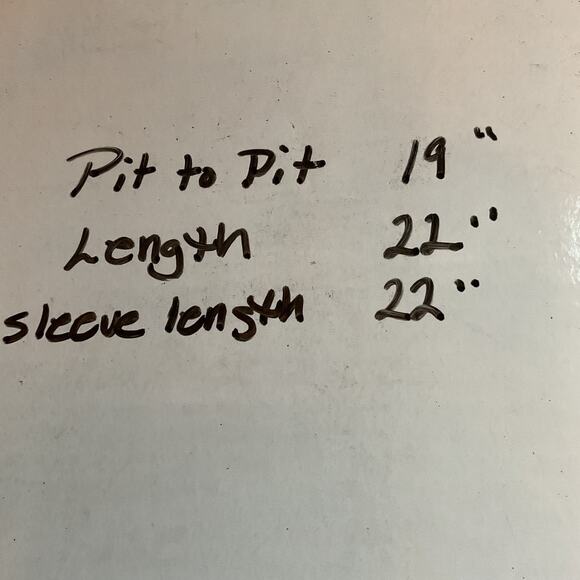 Pit to Pit 19"
Length 22"
sleeve length 22"